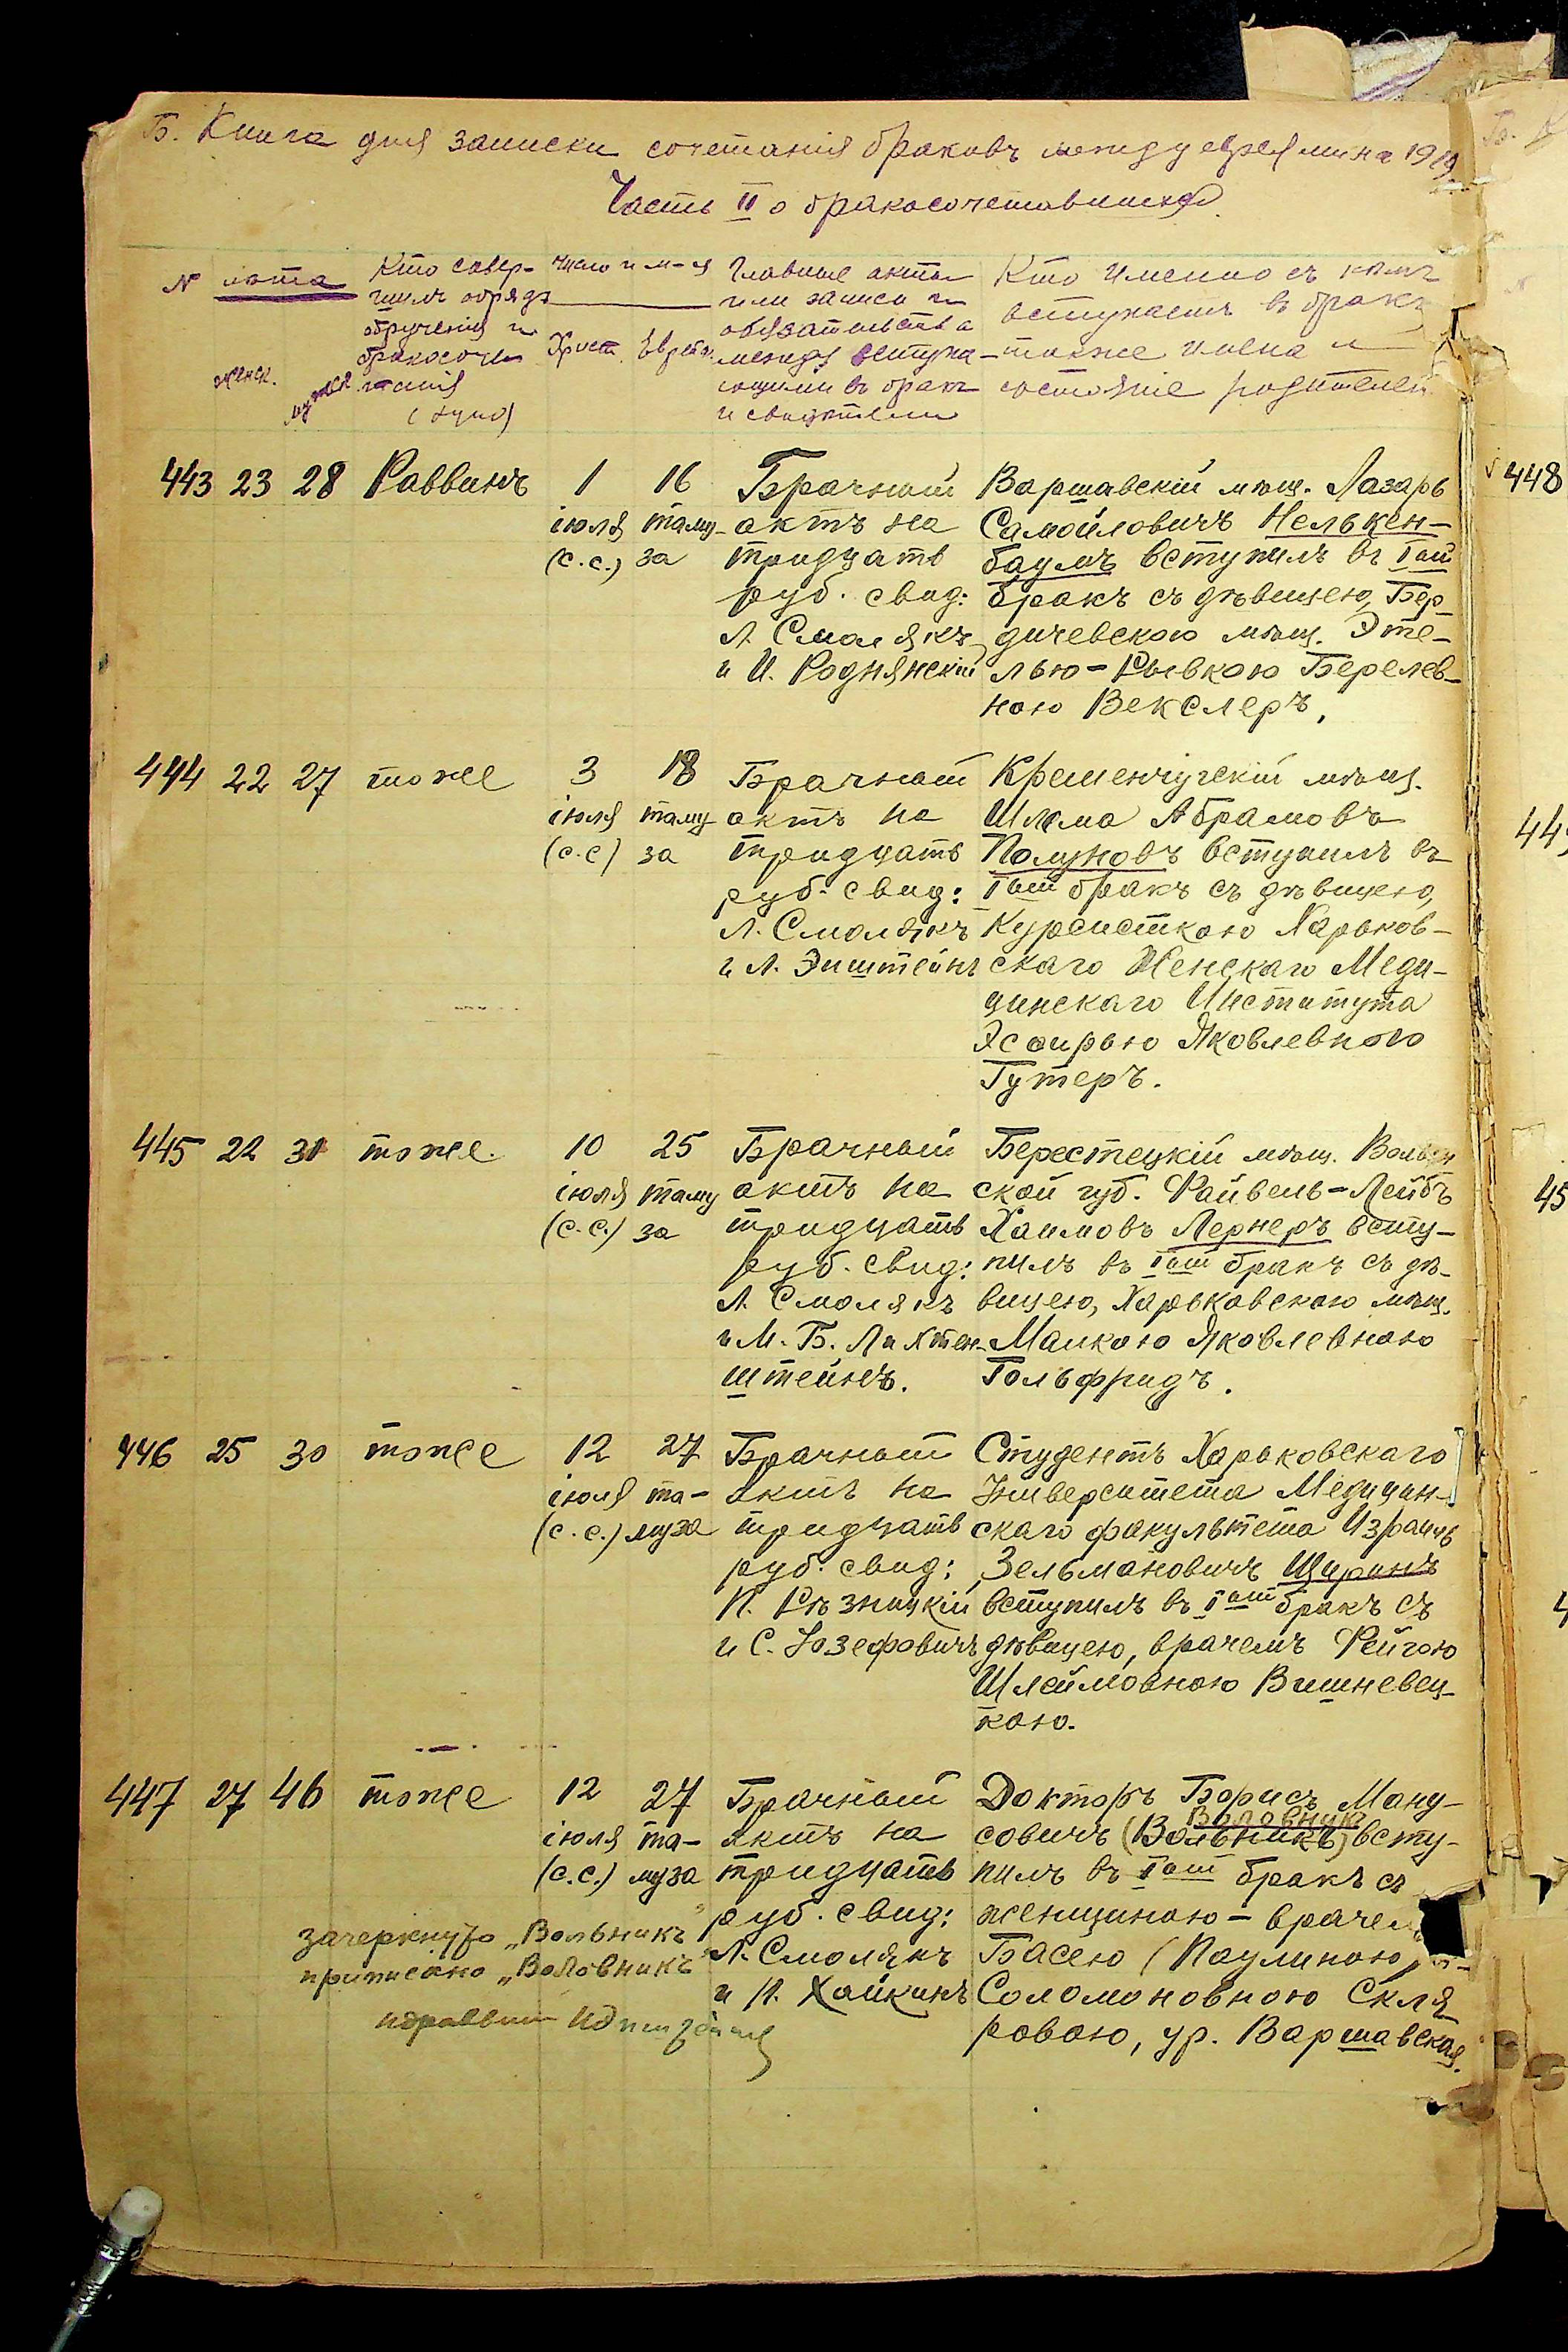 Б. Книга для записки сочетанія браковъ между евреями на 1919
Часть II о бракосочетавшихся
N лѣта
женск. мужеск.
Кто совер-
шилъ обрядъ
обрученія и
бракосоче-
танія
Число и м-ц
Христ. Еврейс.
Главные акты
или записи и
обязательства
между вступа-
ющими въ бракъ
и свидѣтели
Кто именно съ кѣмъ
вступаетъ въ бракъ
также имена и
состояніе родителей
443 23 28 Раввинъ
1
іюля
(с.с.)
16
таму-
за
Брачный
актъ на
тридцать
руб. свид:
Л. Смолякъ
и И. Роднянскій
Варшавскій мѣщ. Лазарь
Самойловичъ Нелькен-
баумъ вступилъ въ Iый
бракъ съ дѣвицею, Бер-
дичевскою мѣщ. Эте-
лью-Рывкою Берелев-
ною Векслеръ.
444 22 27 тоже
3
іюля
(с.с)
18
таму
за
Брачный
актъ на
тридцать
руб. свид:
Л. Смолякъ
и Л. Эпштейнъ
Кременчугскій мѣщ.
Шлема Абрамовъ
Полуновъ вступилъ въ
Iый бракъ съ дѣвицею,
Курсисткою Харьков-
скаго Женскаго Меди-
цинскаго Института
Эсѳирью Яковлевною
Гутеръ.
445 22 31 тоже.
10
іюля
(с.с.)
25
таму
за
Брачный
актъ на
тридцать
руб. свид:
Л. Смолякъ
и М. Б. Лихтен-
штейнъ.
Берестецкій мѣщ. Волын
ской губ. Файвель-Лейбъ
Хаимовъ Лернеръ всту-
пилъ въ Iый бракъ съ дѣ-
вицею, Харьковскою мѣщ.
Малкою Яковлевною
Гольфридъ.
446 25 30 тоже
12
іюля
(с.с.)
27
та-
муза
Брачный
актъ на
тридцать
руб. свид:
П. Рѣзницкій
и С. Юзефовичъ
Студентъ Харьковскаго
Университета Медицин-
скаго факультета Израиль
Зельмановичъ Щиринъ
вступилъ въ Iый бракъ съ
дѣвицею, врачемъ Фейгою
Шлеймовною Вишневец-
кою.
447 27 46 тоже
12
іюля
(с.с.)
27
та-
муза
Брачный
актъ на
тридцать
руб. свид:
Л. Смолякъ
и Н. Хайкинъ
Докторъ Борисъ Ману-
Воловник
совичъ (Вольникъ) всту-
пилъ въ Iый бракъ съ
женщиною-врачем
Басею (Паулиною)
Соломоновною Скля
ровою, ур. Варшавская.
зачеркнуто „Вольникъ"
приписано „Воловникъ"
448